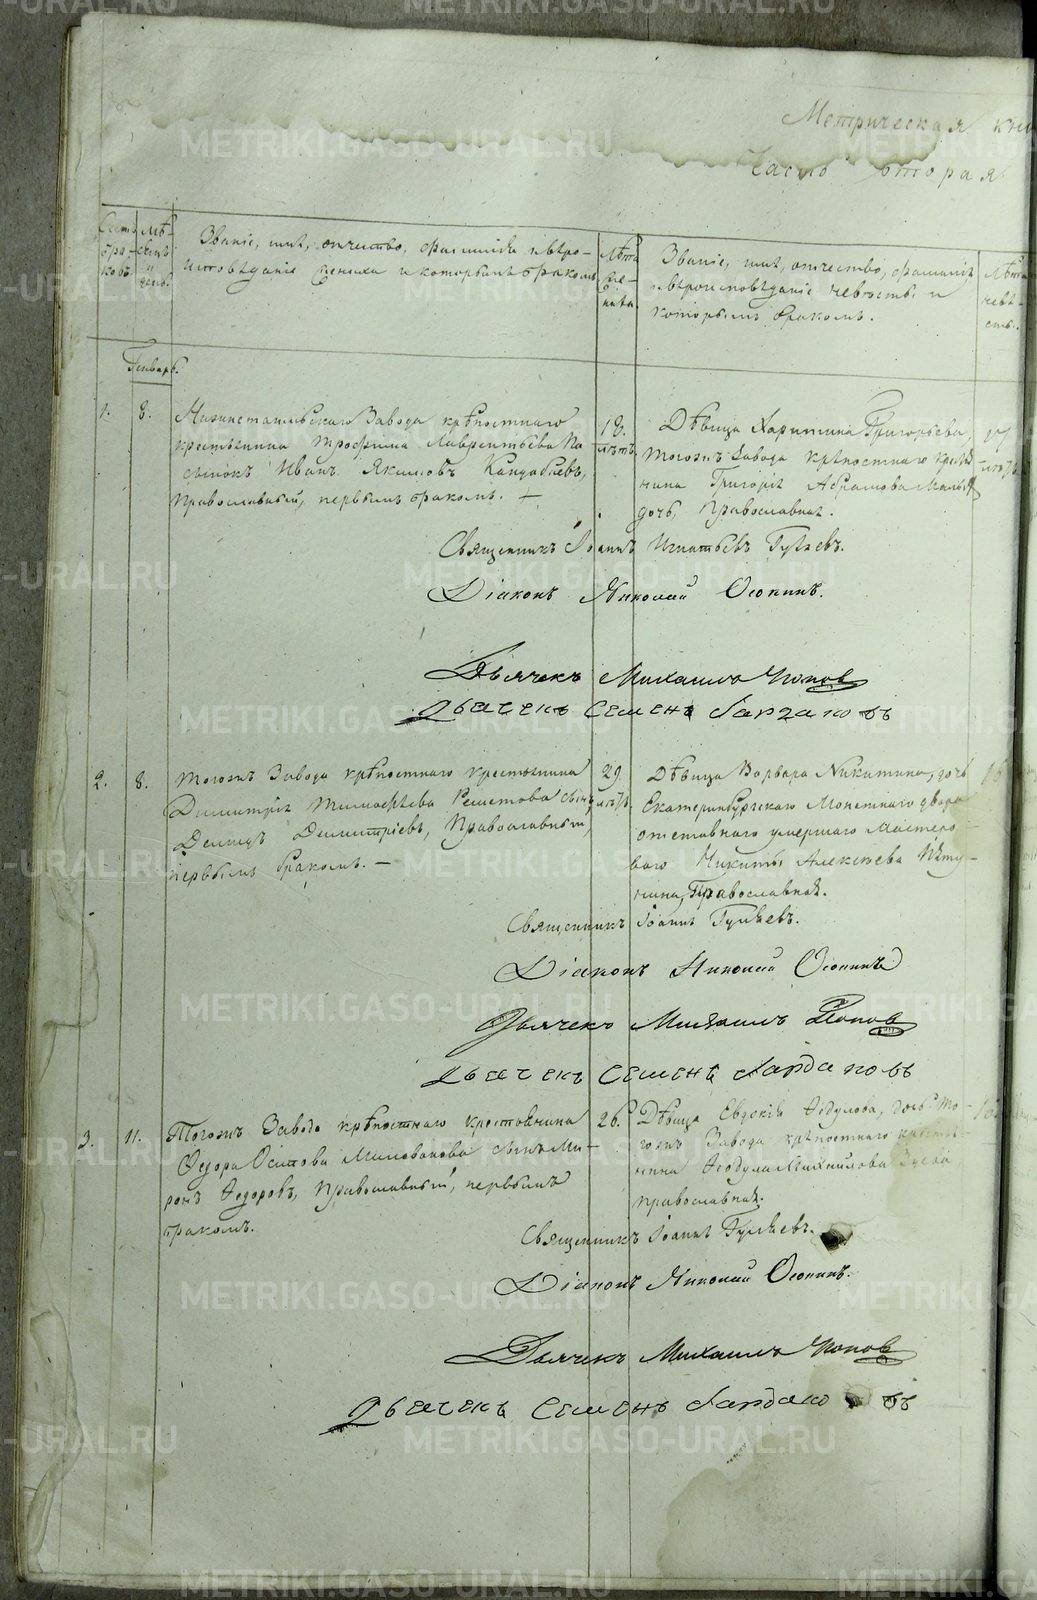 Метрическая кни
Часть вторая
Счетъ браковъ
Мѣсяцъ и день.
Званіе, имя, отчество, фамилія и вѣроисповѣданіе жениха и которымъ бракомъ
Лѣта жениха.
Званіе, имя, отчество, фамилія и вѣроисповѣданіе невѣсты и которымъ бракомъ.
Лѣта невѣсты.
Генварь.
1. 8.
Нижнетагильскаго Завода крѣпостнаго
крестьянина Трофима Лаврентьева
Иванъ Якимовъ
Православный, первымъ бракомъ. —
18.
лѣтъ.
Дѣвица Харитина Григорьева,
тогожъ Завода крѣпостнаго кресть
нина Григорія Абрамова
дочь, Православная.
17
Священникъ Іоаннъ Игнатьевъ
Діаконъ Николай Осокинъ.
Дьячекъ Михаилъ Попов
Дьячекъ Семенъ
2. 8.
Тогожъ Завода крѣпостнаго крестьянина
Димитрія Тимофѣева Решетова сынъ
Димитріевъ, Православный,
первымъ бракомъ. —
29.
лѣтъ.
Дѣвица Варвара Никитина, дочь
Екатеринбургскаго Монетнаго двора
отставнаго умершаго мастеро-
ваго Никиты Алексѣева Пѣту-
нина, Православная.
16
Священникъ Іоаннъ
Діаконъ Николай Осокинъ
Дьячекъ Михаилъ Попов
Дьячекъ Семенъ
3. 11.
Тогожъ Завода крѣпостнаго крестьянина
Ѳедора Осипова Милованова сынъ Ми-
ронъ Ѳедоровъ, Православный, первымъ
бракомъ.
26.
Дѣвица Евдокія Ѳедулова, дочь то-
гожъ Завода крѣпостнаго кресть-
нина Ѳеодула Михайлова
православная.
Священникъ Іоаннъ
Діаконъ Николай Осокинъ.
Дьячекъ Михаилъ Попов
Дьячекъ Семенъ
METRIKI.GASO-URAL.RU